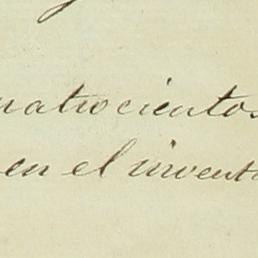 uatrocientos
en el invent